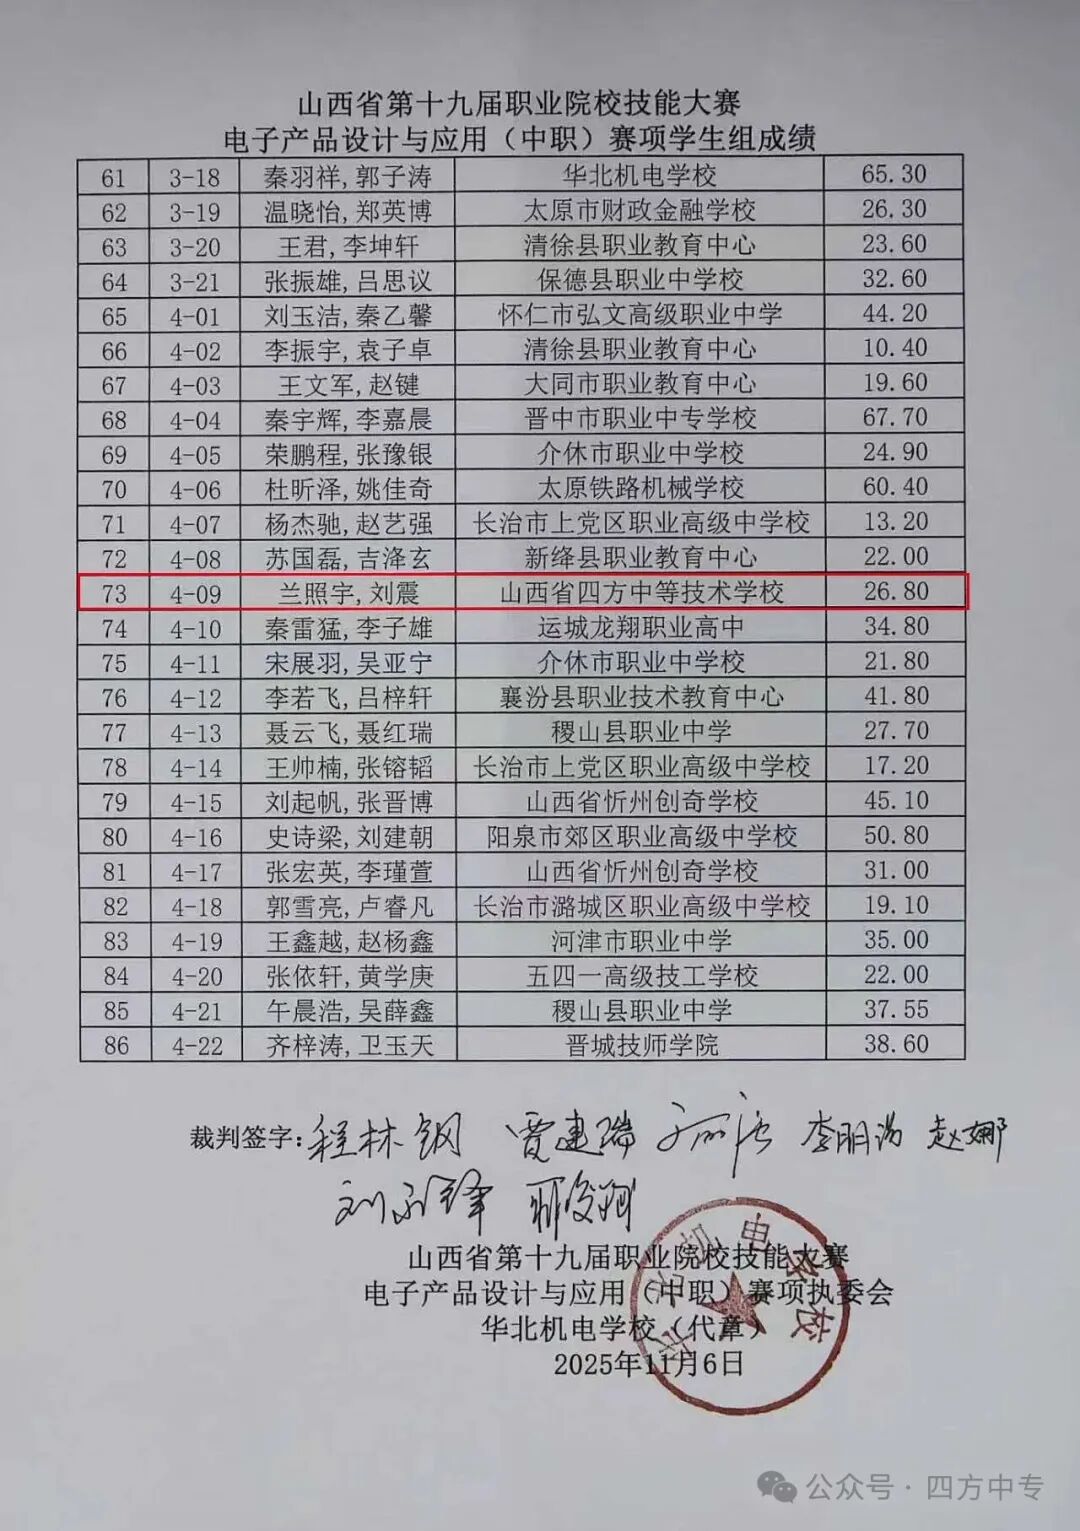 山西省第十九届职业院校技能大赛
电子产品设计与应用（中职）赛项学生组成绩
61 3-18 秦羽祥,郭子涛 华北机电学校 65.30
62 3-19 温晓怡,郑英博 太原市财政金融学校 26.30
63 3-20 王君,李坤轩 清徐县职业教育中心 23.60
64 3-21 张振雄,吕思议 保德县职业中学校 32.60
65 4-01 刘玉洁,秦乙馨 怀仁市弘文高级职业中学 44.20
66 4-02 李振宇,袁子卓 清徐县职业教育中心 10.40
67 4-03 王文军,赵键 大同市职业教育中心 19.60
68 4-04 秦宇辉,李嘉晨 晋中市职业中专学校 67.70
69 4-05 荣鹏程,张豫银 介休市职业中学校 24.90
70 4-06 杜昕泽,姚佳奇 太原铁路机械学校 60.40
71 4-07 杨杰驰,赵艺强 长治市上党区职业高级中学校 13.20
72 4-08 苏国磊,吉泽玄 新绛县职业教育中心 22.00
73 4-09 兰照宇,刘震 山西省四方中等技术学校 26.80
74 4-10 秦雷猛,李子雄 运城龙翔职业高中 34.80
75 4-11 宋展羽,吴亚宁 介休市职业中学校 21.80
76 4-12 李若飞,吕梓轩 襄汾县职业技术教育中心 41.80
77 4-13 聂云飞,聂红瑞 稷山县职业中学 27.70
78 4-14 王帅楠,张镕韬 长治市上党区职业高级中学校 17.20
79 4-15 刘起帆,张晋博 山西省忻州创奇学校 45.10
80 4-16 史诗梁,刘建朝 阳泉市郊区职业高级中学校 50.80
81 4-17 张宏英,李瑾萱 山西省忻州创奇学校 31.00
82 4-18 郭雪亮,卢睿凡 长治市潞城区职业高级中学校 19.10
83 4-19 王鑫越,赵杨鑫 河津市职业中学 35.00
84 4-20 张依轩,黄学庚 五四一高级技工学校 22.00
85 4-21 午晨浩,吴薛鑫 稷山县职业中学 37.55
86 4-22 齐梓涛,卫玉天 晋城技师学院 38.60
裁判签字：程林钢 贾建瑞 赵娜
山西省第十九届职业院校技能大赛
电子产品设计与应用（中职）赛项执委会
华北机电学校（代章）
2025年11月6日
华北机电学校
公众号·四方中专